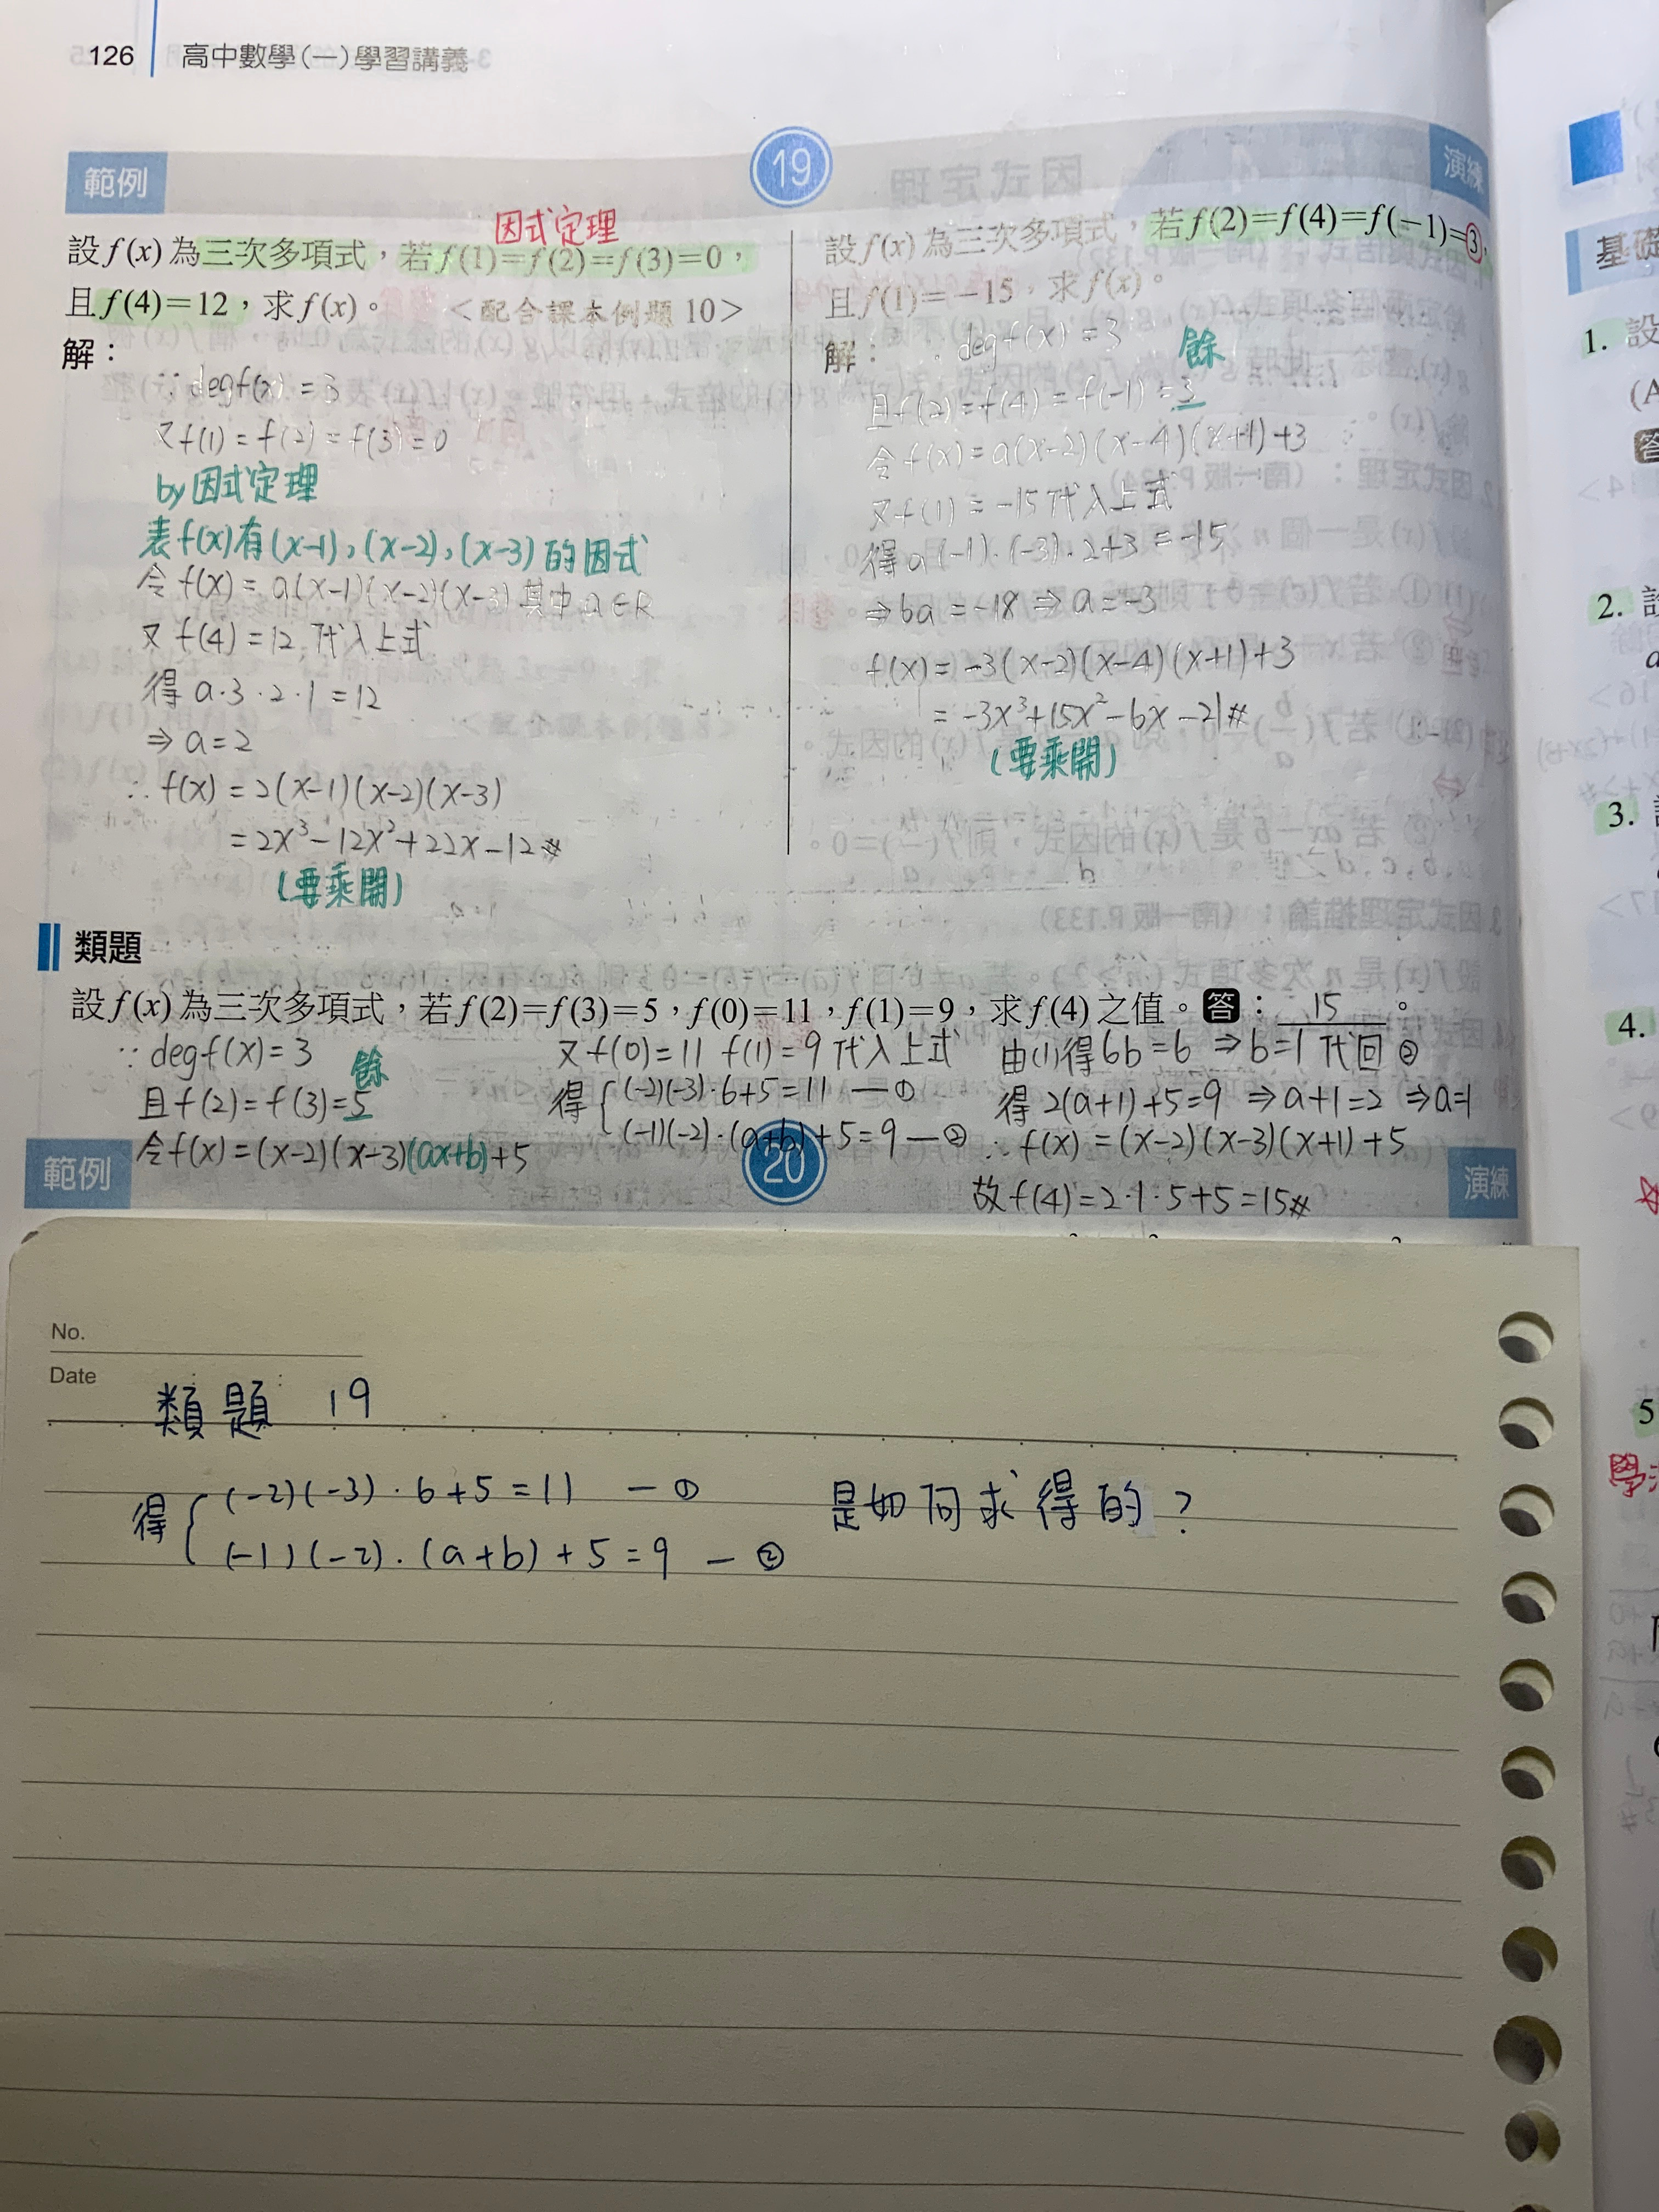 126 高中數學(一)學習講義
範例 19 演練
因式定理
設f(x)為三次多項式，若f(1)=f(2)=f(3)=0，
且f(4)=12，求f(x)。 <配合課本例題10>
解：
∵degf(x)=3
又f(1)=f(2)=f(3)=0
by因式定理
表f(x)有(x-1),(x-2),(x-3)的因式
令f(x)=a(x-1)(x-2)(x-3)其中a∈R
又f(4)=12,代入上式
得a·3·2·1=12
⇒a=2
∴f(x)=2(x-1)(x-2)(x-3)
=2x³-12x²+22x-12#
(要乘開)
設f(x)為三次多項式，若f(2)=f(4)=f(-1)=3，
且f(1)=-15，求f(x)。
解： ∵degf(x)=3
餘
且f(2)=f(4)=f(-1)=3
令f(x)=a(x-2)(x-4)(x+1)+3
又f(1)=-15代入上式
得a(-1)·(-3)·2+3=-15
⇒6a=-18⇒a=-3
f(x)=-3(x-2)(x-4)(x+1)+3
=-3x³+15x²-6x-21#
(要乘開)
類題
設f(x)為三次多項式，若f(2)=f(3)=5，f(0)=11，f(1)=9，求f(4)之值。答：15。
∵degf(x)=3
餘
且f(2)=f(3)=5
令f(x)=(x-2)(x-3)(ax+b)+5
又f(0)=11 f(1)=9代入上式
得{(-2)(-3)·6+5=11 —①
(-1)(-2)·(a+b)+5=9—②
由(1)得6b=6 ⇒b=1代回②
得2(a+1)+5=9 ⇒a+1=2 ⇒a=1
∴f(x)=(x-2)(x-3)(x+1)+5
故f(4)=2·1·5+5=15#
範例 20 演練
No.
Date
類題 19
得{(-2)(-3)·6+5=11 —① 是如何求得的?
(-1)(-2)·(a+b)+5=9 —②
基礎
1. 設
(A
答
2. 設
a
3. 設
4.
5